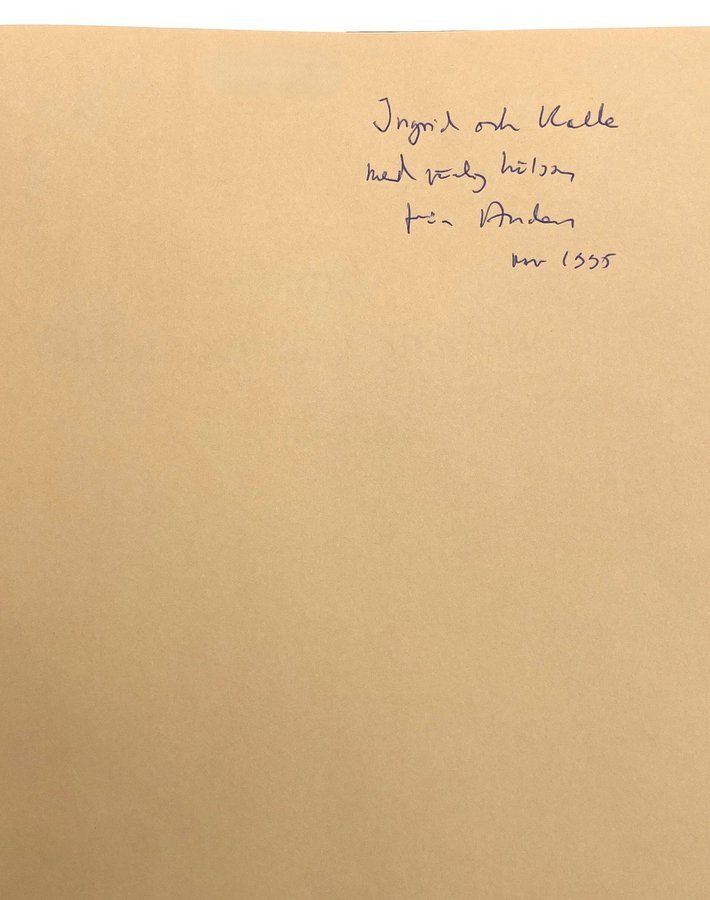 Ingrid och Kalle
med hälsn
från Anders
nov 1995